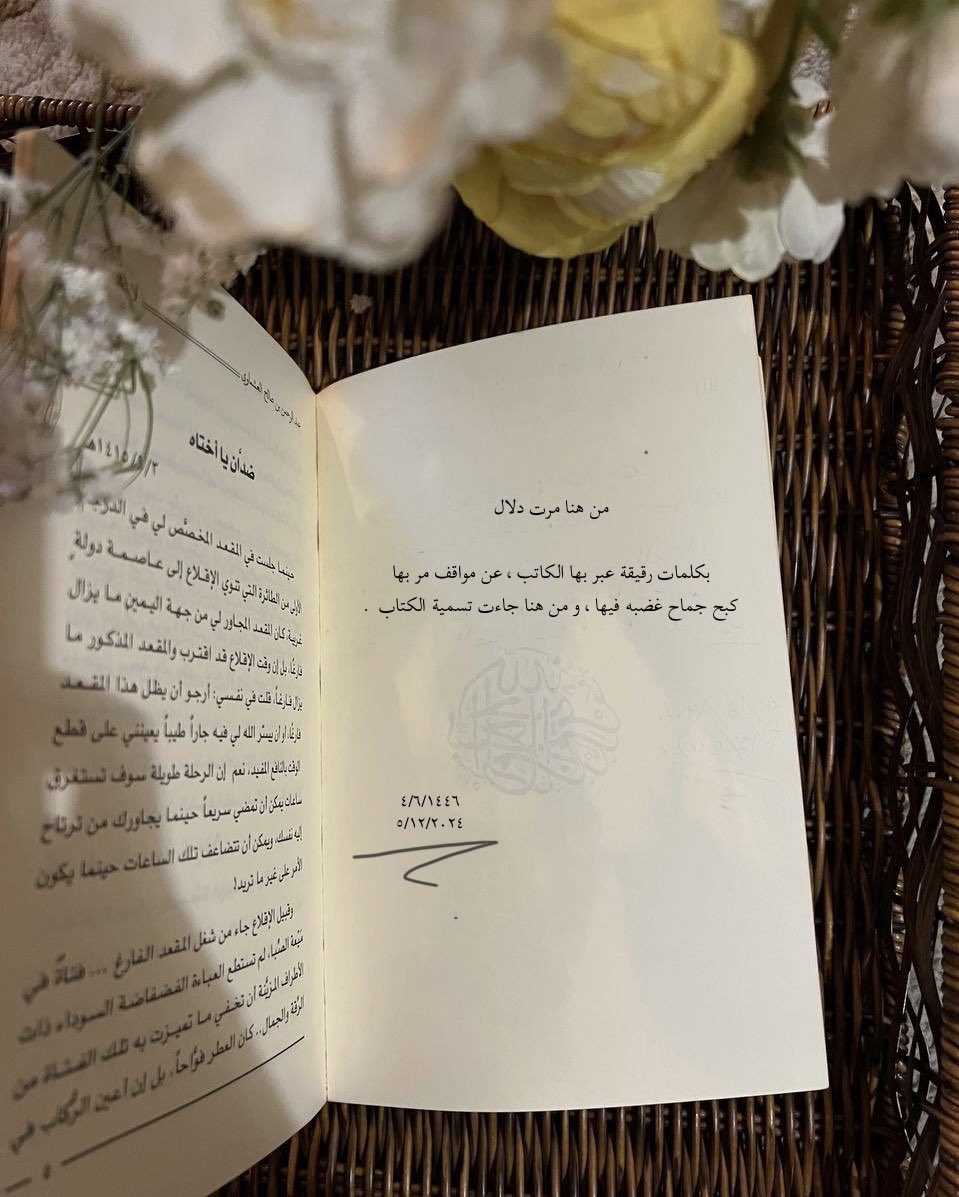 من هنا مرت دلال
بكلمات رقيقة عبر بها الكاتب ، عن مواقف مر بها
كبح جماح غضبه فيها ، و من هنا جاءت تسمية الكتاب .
٤/٦/١٤٤٦
٥/١٢/٢٠٢٤
عبد الرحمن بن صالح العشماوي
ضدان يا أختاه
١٤١٥/٩/٢هـ
حينما جلست في المقعد المخصَّص لي في الدرجة
الأولى من الطائرة التي تنوي الإقلاع إلى عاصمة دولةٍ
غربية، كان المقعد المجاور لي من جهة اليمين ما يزال
فارغاً، بل إن وقت الإقلاع قد اقترب والمقعد المذكور ما
يزال فارغاً، قلت في نفسي: أرجو أن يظل هذا المقعد
فارغاً، أو ان ييسّر الله لي فيه جاراً طيباً يعينني على قطع
الوقت بالنافع المفيد، نعم إن الرحلة طويلة سوف تستغرق
ساعات يمكن أن تمضي سريعاً حينما يجاورك من ترتاح
إليه نفسك، ويمكن أن تتضاعف تلك الساعات حينما يكون
الأمر على غير ما تريد!
وقبيل الإقلاع جاء من شغل المقعد الفارغ ... فتاةٌ في
مَيْعة الصِّبا، لم تستطع العباءة الفضفاضة السوداء ذات
الأطراف المزيَّنة أن تخفي ما تميزت به تلك الفتاة من
الرِّقة والجمال.. كان العطر فوَّاحاً، بل إن أعين الرُّكاب في
٥